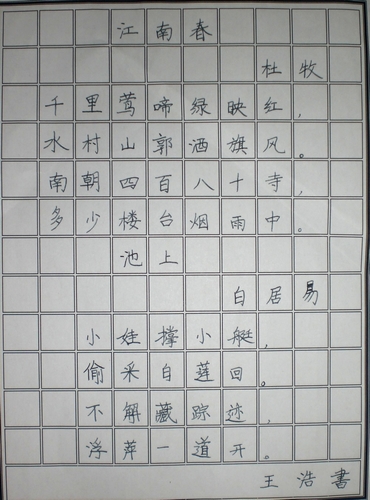 江南春
杜牧
千里莺啼绿映红，
水村山郭酒旗风。
南朝四百八十寺，
多少楼台烟雨中。
池上
白居易
小娃撑小艇，
偷采白莲回。
不解藏踪迹，
浮萍一道开。
王浩書